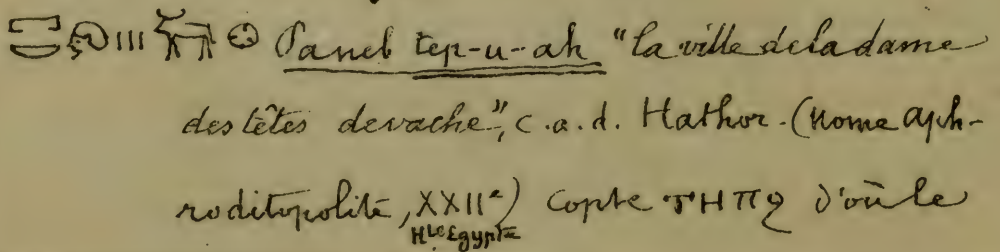 Paneb tep-u-ah "la ville de la dame
des têtes de vache", c.a.d. Hathor. (Nome Aph-
roditopolite, XXIIe) Copte ⲧⲏⲡϩ d'où le
Hte Egypte